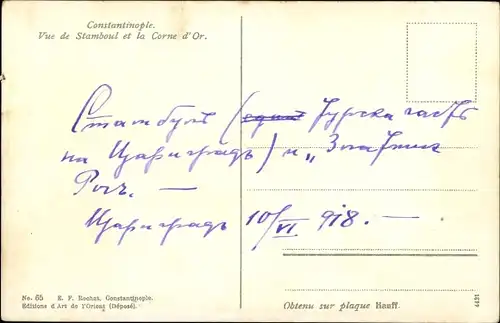 Constantinople.
Vue de Stamboul et la Corne d'Or.
Стамбулъ (един Турска часть
на Цариградъ) и „Златния
Рогъ. —
Цариградъ 10/VI 918. —
No. 65 E. F. Rochat, Constantinople.
Editions d'Art de l'Orient (Déposé).
Obtenu sur plaque Hauff.
4431